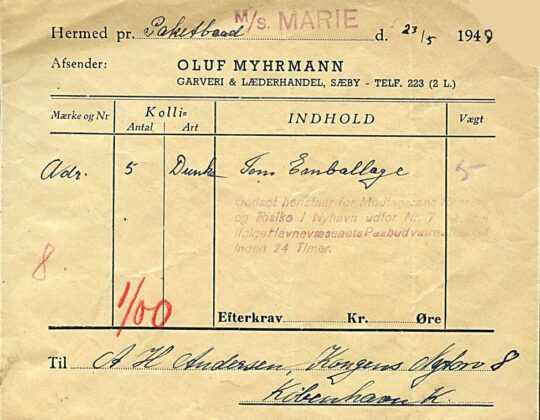 M/S. MARIE
Hermed pr. Paketbaad d. 23/5 1949
Afsender: OLUF MYHRMANN
GARVERI & LÆDERHANDEL, SÆBY - TELF. 223 (2 L.)
Mærke og Nr Kolli= Antal Art INDHOLD Vægt
Adr. 5 Dunke Tom Emballage 5-
Godset henstaar for Modtagerens
og Risiko i Nyhavn udfor Nr. 7
ifølge Havnevæsenets Paabud være
inden 24 Timer.
8.
1/00
Efterkrav Kr. Øre
Til A H Andersen, Kongens Nytorv 8
København K.